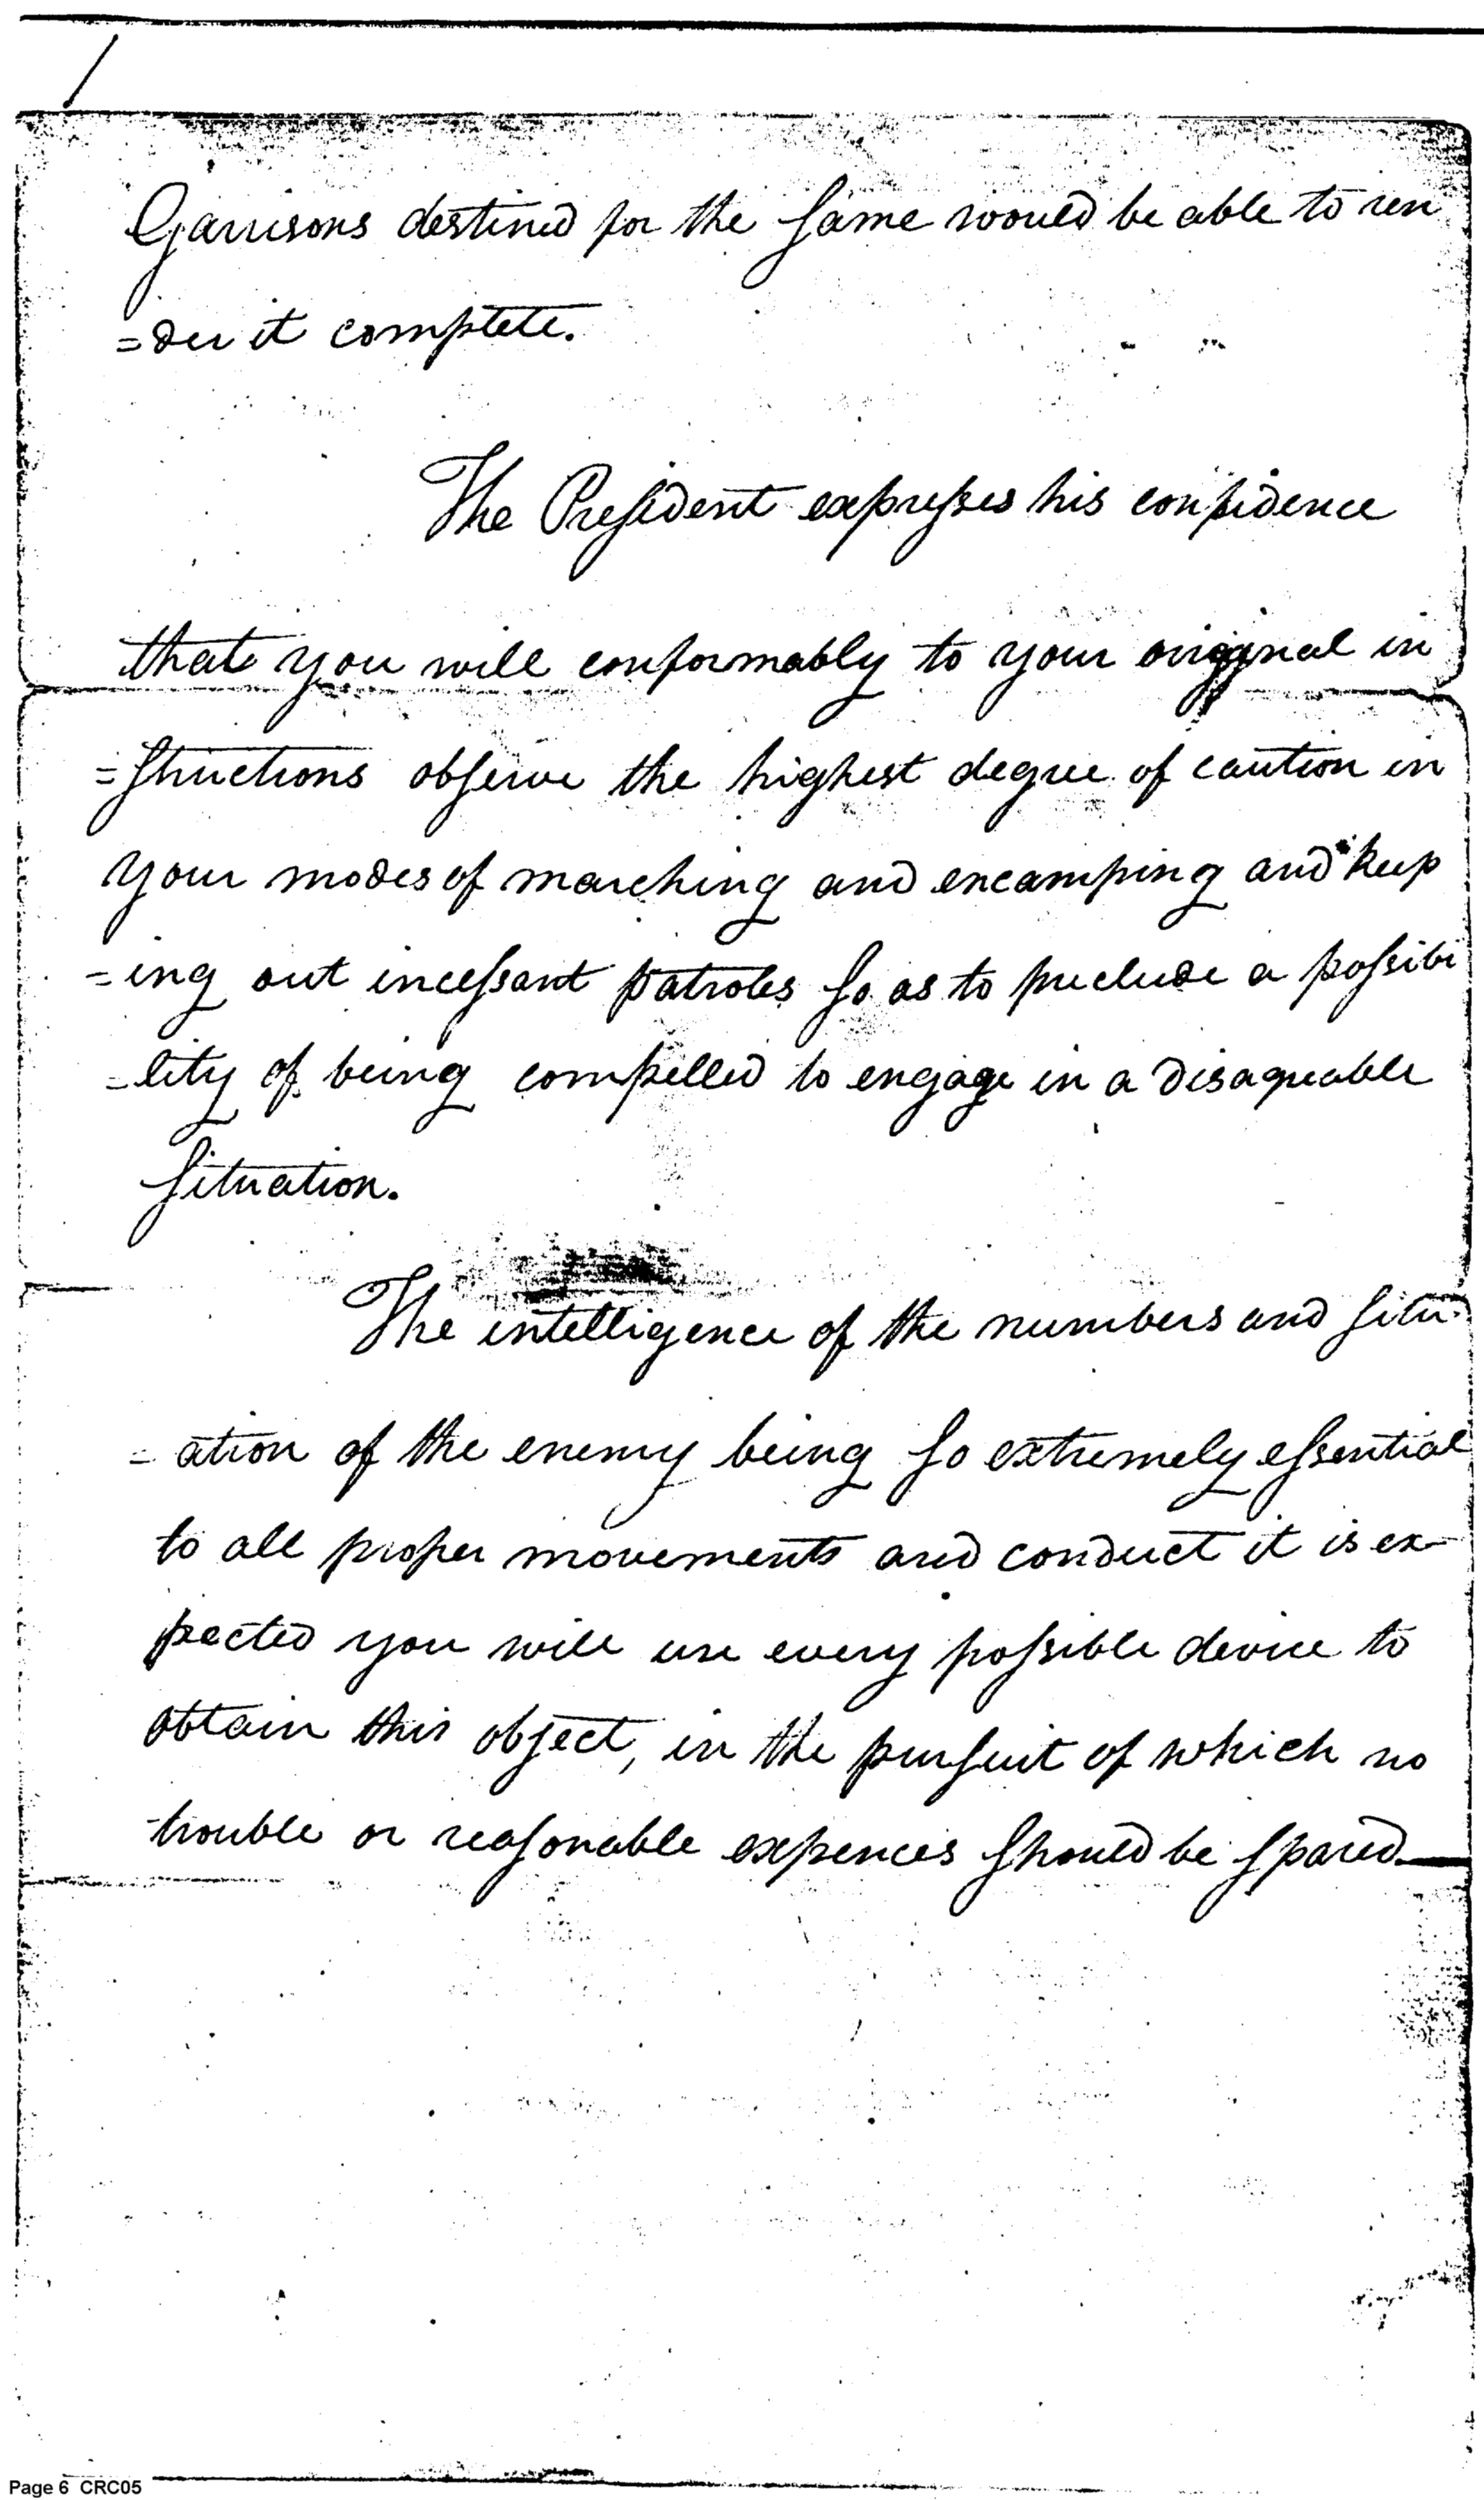 Garrisons destined for the same would be able to ren
=der it complete.
The President expresses his confidence
that you will conformably to your original in
=structions observe the highest degree of caution in
your modes of marching and encamping and keep
=ing out incessant patroles so as to preclude a possibi
=lity of being compelled to engage in a disagreable
situation.
The intelligence of the numbers and situ
=ation of the enemy being so extremely essential
to all proper movements and conduct it is ex-
pected you will use every possible device to
obtain this object, in the pursuit of which no
trouble or reasonable expences should be spared.—
Page 6 CRC05